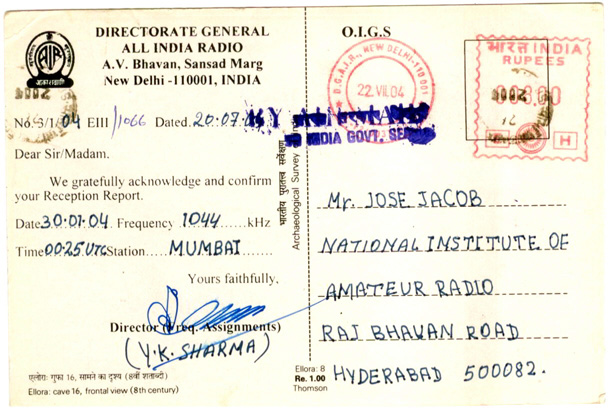 DIRECTORATE GENERAL
ALL INDIA RADIO
A.V. Bhavan, Sansad Marg
New Delhi -110001, INDIA
No. S/1/04 EIII/1066 Dated. 20.07.
Dear Sir/Madam.
We gratefully acknowledge and confirm
your Reception Report.
Date 30.01.04. Frequency 1044 kHz
Time 00.25 UTC Station MUMBAI
Yours faithfully,
Director (Freq. Assignments)
(Y.K. SHARMA)
एलोरा: गुफा 16, सामने का दृश्य (8वीं शताब्दी)
Ellora: cave 16, frontal view (8th century)
भारतीय पुरातत्व सर्वेक्षण
Archaeological Survey
Ellora: 8
Re. 1.00
Thomson
O.I.G.S
D.G.A.I.R., NEW DELHI-110 001
22.VII.04
भारत INDIA
RUPEES
H
INDIA GOVT.
Mr. JOSE JACOB
NATIONAL INSTITUTE OF
AMATEUR RADIO
RAJ BHAVAN ROAD
HYDERABAD 500082.